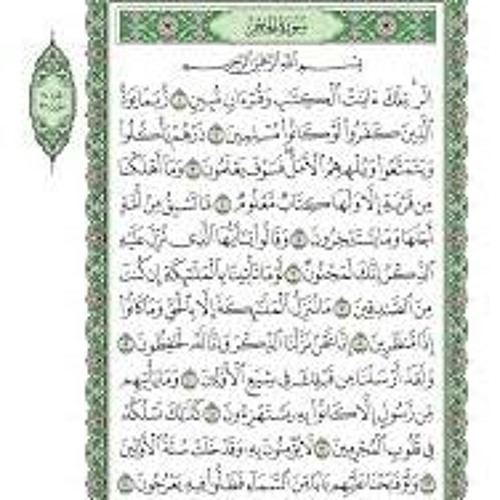 سورة الحجر
بسم الله الرحمن الرحيم
الٓر تِلْكَ ءَايَٰتُ ٱلْكِتَٰبِ وَقُرْءَانٍ مُّبِينٍ ١ رُّبَمَا يَوَدُّ
ٱلَّذِينَ كَفَرُوا۟ لَوْ كَانُوا۟ مُسْلِمِينَ ٢ ذَرْهُمْ يَأْكُلُوا۟
وَيَتَمَتَّعُوا۟ وَيُلْهِهِمُ ٱلْأَمَلُ فَسَوْفَ يَعْلَمُونَ ٣ وَمَآ أَهْلَكْنَا
مِن قَرْيَةٍ إِلَّا وَلَهَا كِتَابٌ مَّعْلُومٌ ٤ مَّا تَسْبِقُ مِنْ أُمَّةٍ
أَجَلَهَا وَمَا يَسْتَـْٔخِرُونَ ٥ وَقَالُوا۟ يَٰٓأَيُّهَا ٱلَّذِى نُزِّلَ عَلَيْهِ
ٱلذِّكْرُ إِنَّكَ لَمَجْنُونٌ ٦ لَّوْ مَا تَأْتِينَا بِٱلْمَلَٰٓئِكَةِ إِن كُنتَ
مِنَ ٱلصَّٰدِقِينَ ٧ مَا نُنَزِّلُ ٱلْمَلَٰٓئِكَةَ إِلَّا بِٱلْحَقِّ وَمَا كَانُوٓا۟
إِذًا مُّنظَرِينَ ٨ إِنَّا نَحْنُ نَزَّلْنَا ٱلذِّكْرَ وَإِنَّا لَهُۥ لَحَٰفِظُونَ ٩
وَلَقَدْ أَرْسَلْنَا مِن قَبْلِكَ فِى شِيَعِ ٱلْأَوَّلِينَ ١٠ وَمَا يَأْتِيهِم
مِّن رَّسُولٍ إِلَّا كَانُوا۟ بِهِۦ يَسْتَهْزِءُونَ ١١ كَذَٰلِكَ نَسْلُكُهُۥ
فِى قُلُوبِ ٱلْمُجْرِمِينَ ١٢ لَا يُؤْمِنُونَ بِهِۦ وَقَدْ خَلَتْ سُنَّةُ ٱلْأَوَّلِينَ
١٣ وَلَوْ فَتَحْنَا عَلَيْهِم بَابًا مِّنَ ٱلسَّمَآءِ فَظَلُّوا۟ فِيهِ يَعْرُجُونَ ١٤